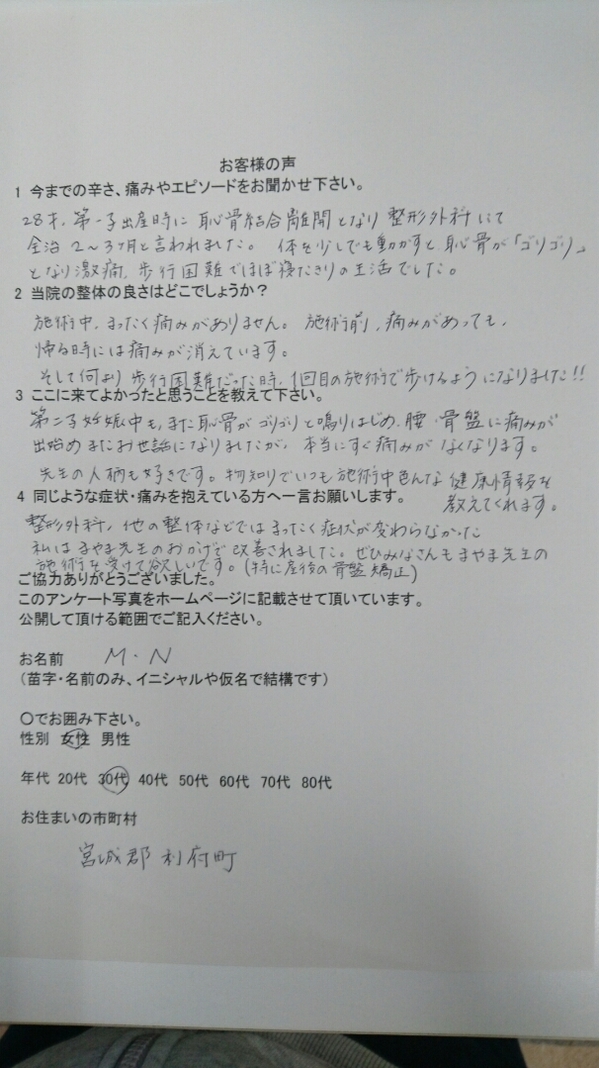 お客様の声
1 今までの辛さ、痛みやエピソードをお聞かせ下さい。
28才、第一子出産時に恥骨結合離開となり整形外科にて
全治2〜3ヶ月と言われました。 体を少しでも動かすと恥骨が「ゴリゴリ」
となり激痛、歩行困難でほぼ寝たきりの生活でした。
2 当院の整体の良さはどこでしょうか？
施術中、まったく痛みがありません。施術前、痛みがあっても、
帰る時には痛みが消えています。
そして何より歩行困難だった時、1回目の施術で歩けるようになりました!!
3 ここに来てよかったと思うことを教えて下さい。
第二子妊娠中も、また恥骨がゴリゴリと鳴りはじめ、腰・骨盤に痛みが
出始めまたお世話になりましたが、本当にすぐ痛みがなくなります。
先生の人柄も好きです。物知りでいつも施術中色んな健康情報を
教えてくれます。
4 同じような症状・痛みを抱えている方へ一言お願いします。
整形外科、他の整体などではまったく症状が変わらなかった
私はまやま先生のおかげで改善されました。ぜひみなさんもまやま先生の
施術を受けて欲しいです。(特に産後の骨盤矯正)
ご協力ありがとうございました。
このアンケート写真をホームページに記載させて頂いています。
公開して頂ける範囲でご記入ください。
お名前 M・N
（苗字・名前のみ、イニシャルや仮名で結構です）
〇でお囲み下さい。
性別 女性 男性
年代 20代 30代 40代 50代 60代 70代 80代
お住まいの市町村
宮城郡利府町